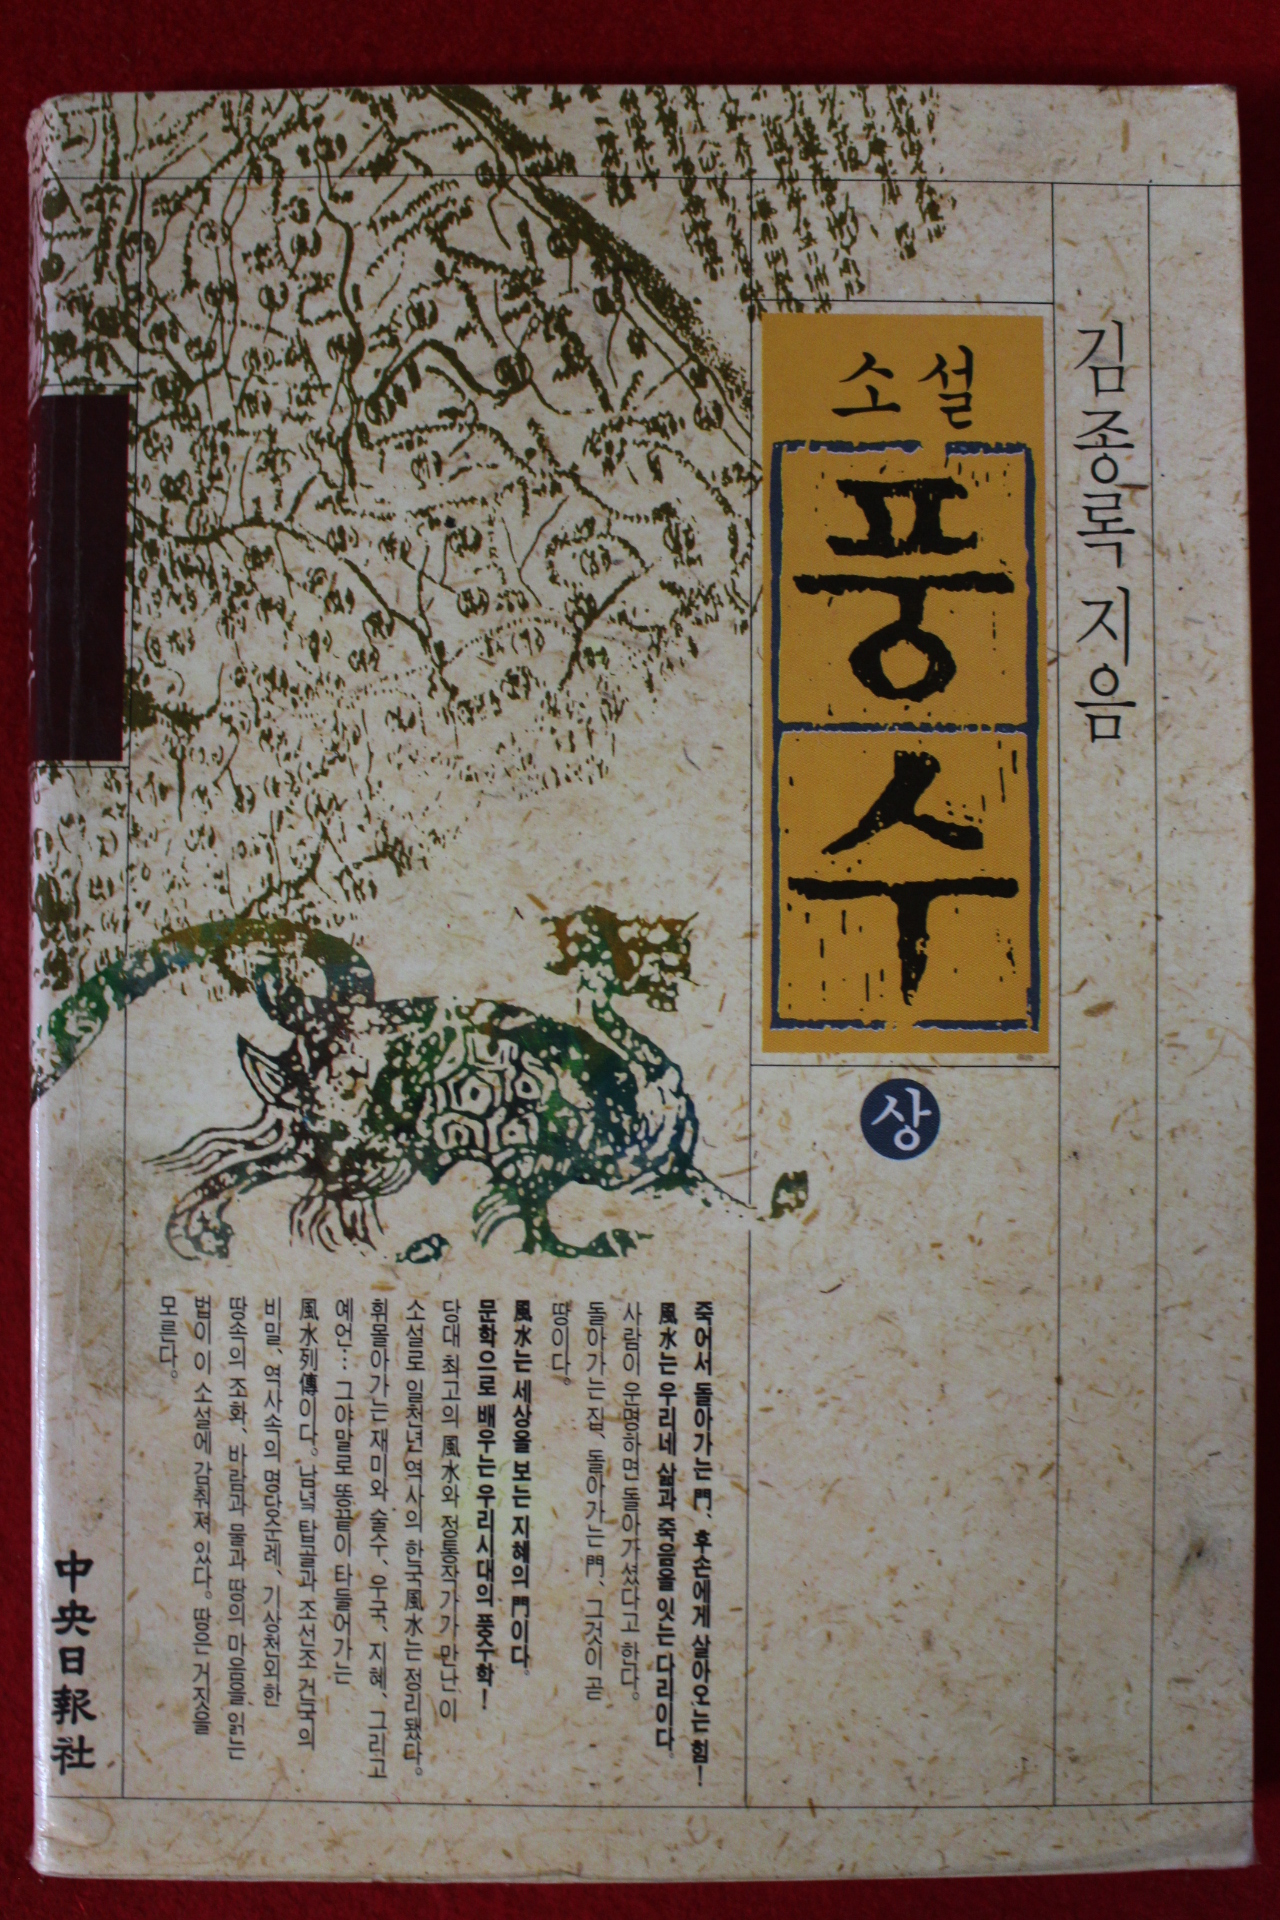 김종록 지음
소설
풍수
상
죽어서 돌아가는 門, 후손에게 살아오는 힘!
風水는 우리네 삶과 죽음을 잇는 다리이다.
사람이 운명하면 돌아가셨다고 한다.
돌아가는 집, 돌아가는 門, 그것이 곧
땅이다.
風水는 세상을 보는 지혜의 門이다.
문학으로 배우는 우리시대의 풍수학!
당대 최고의 風水와 정통작가가 만난 이
소설로 일천년 역사의 한국風水는 정리됐다.
휘몰아가는 재미와 술수, 우국, 지혜, 그리고
예언… 그야말로 똥끝이 타들어가는
風水列傳이다. 남녘 탑골과 조선조 건국의
비밀, 역사속의 명당순례, 기상천외한
땅속의 조화, 바람과 물과 땅의 마음을 읽는
법이 이 소설에 감춰져 있다. 땅은 거짓을
모른다.
中央日報社